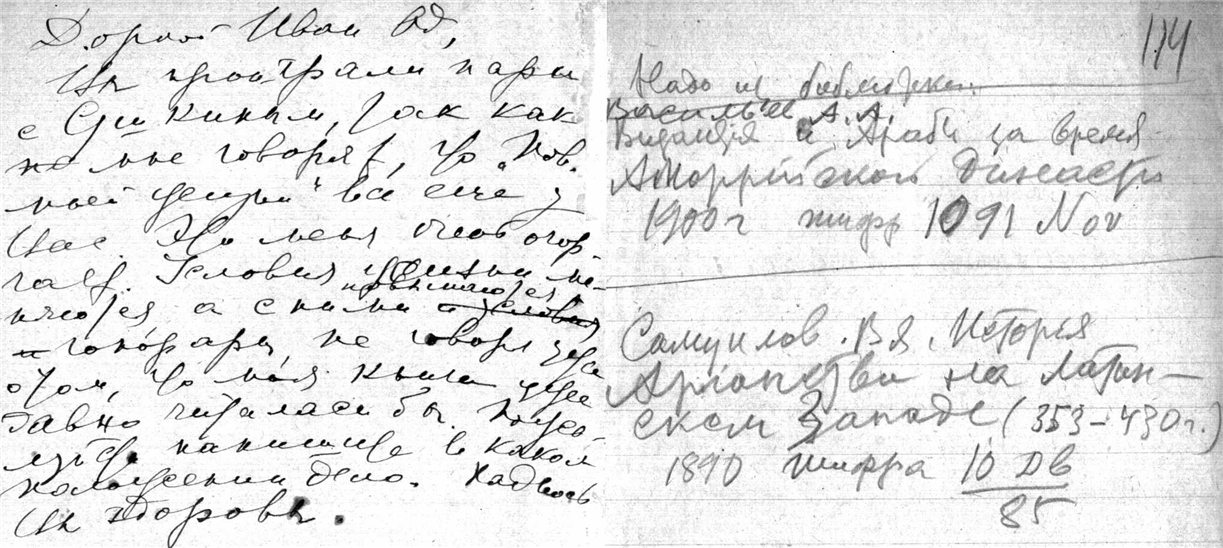 Дорогой Иван Од,
Вы проиграли пари
с Сушкиным, так как
мне говорят, что "Пов.
все еще у
Вас. Это меня очень огор-
чает. Условия жизни ме-
няются а с ними повышаются условия
и гонорары, не говоря уже
о том, что моя книга уже
давно читалась бы. Пожа-
луйста напишите в каком
положении дело. Надеюсь
Вы здоровы.
114
Надо из библиотеки.
Васильев А.А.
Византія и Арабы за время
Аморрійской династіи
1900 г шифр 1091 Nov
Самуилов. В Я. Исторія
Арианства на Латин-
ском Западе (353-430 г.)
1890 шифра 10 Дв
85